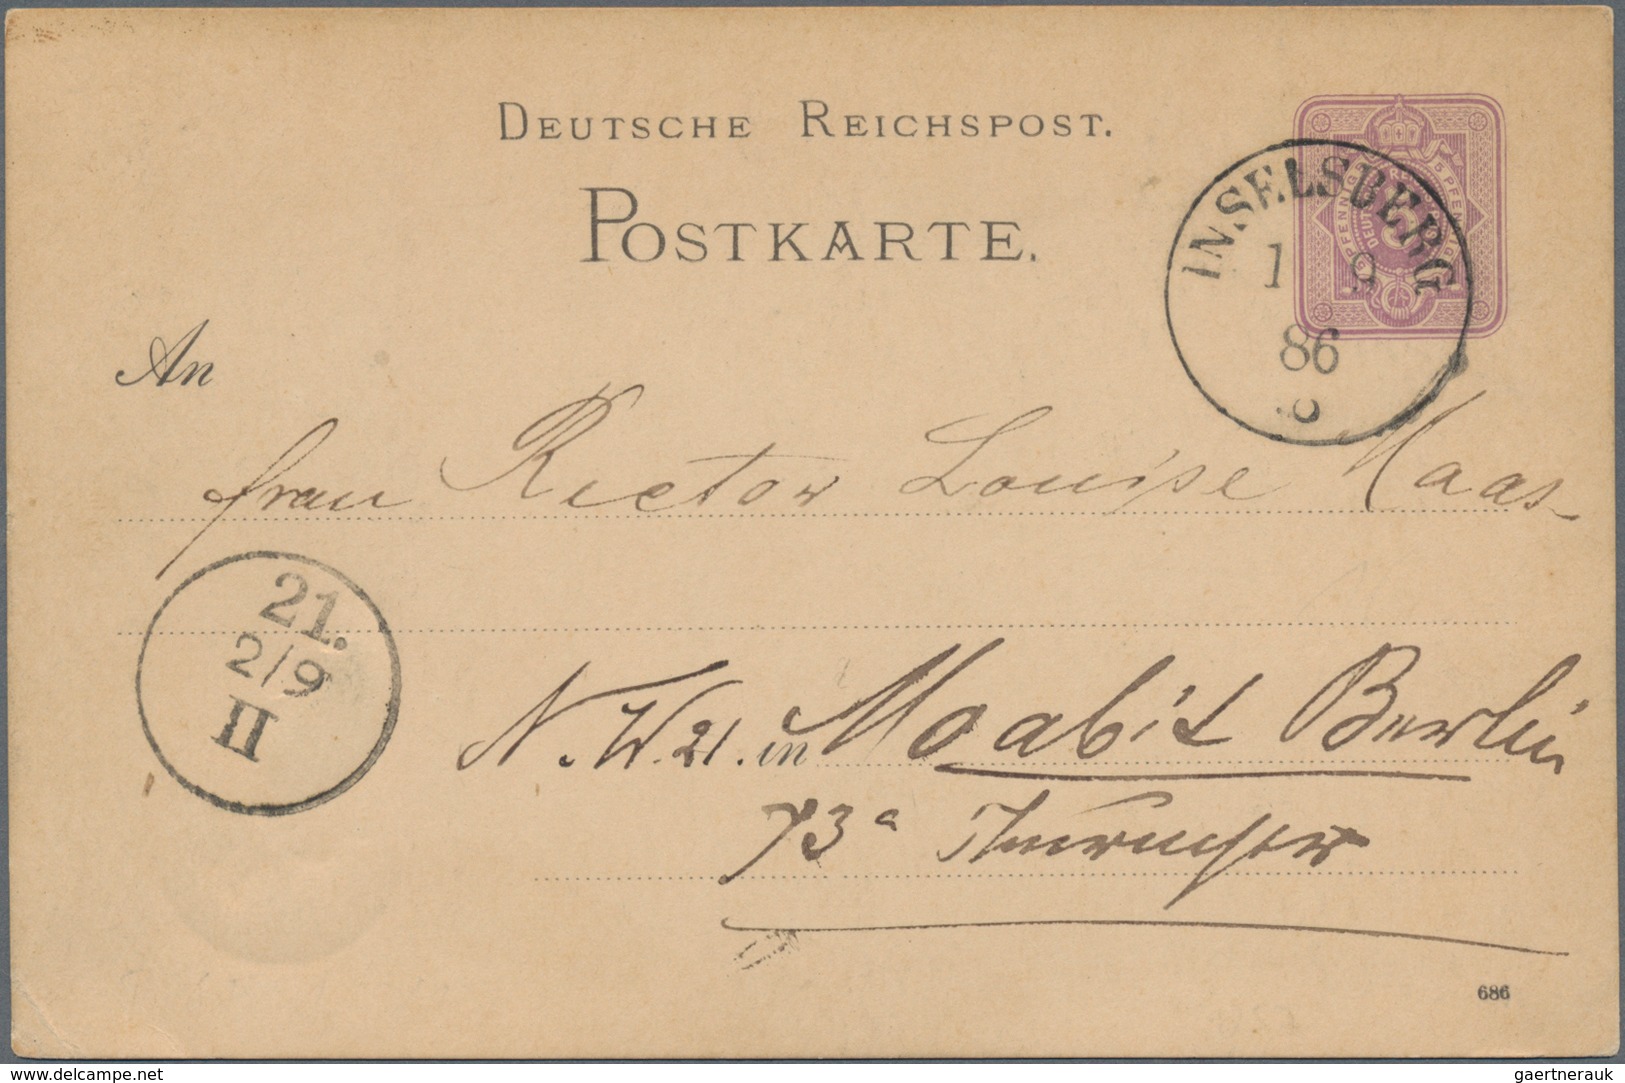 DEUTSCHE REICHSPOST.
POSTKARTE.
5 PFENNIG 5 PFENNIG
INSELSBERG
1 9
86
An
Frau Rector Louise Maas
21.
2/9
II
N. W. 21. in Moabit Berlin
73a
686
www.delcampe.net
gaertnerauk